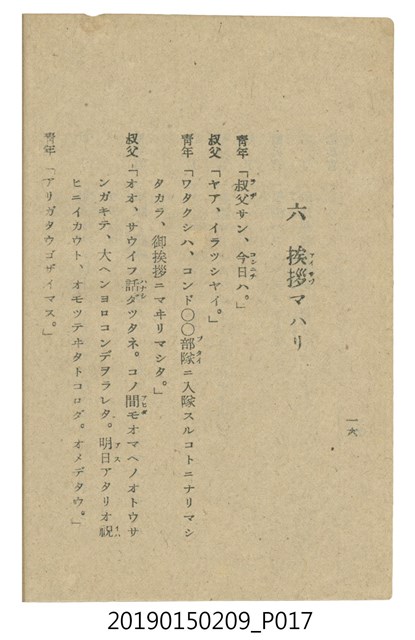 六 挨拶マハリ
青年「叔父サン、今日ハ。」
叔父「ヤア、イラツシヤイ。」
青年「ワタクシハ、コンド〇〇部隊ニ入隊スルコトニナリマシ
タカラ、御挨拶ニマヰリマシタ。」
叔父「オオ、サウイフ話ダツタネ。コノ間モオマヘノオトウサ
ンガキテ、大ヘンヨロコンデヲラレタ。明日アタリオ祝
ヒニイカウト、オモツテヰタトコロダ。オメデタウ。」
青年「アリガタウゴザイマス。」
一六
20190150209_P017